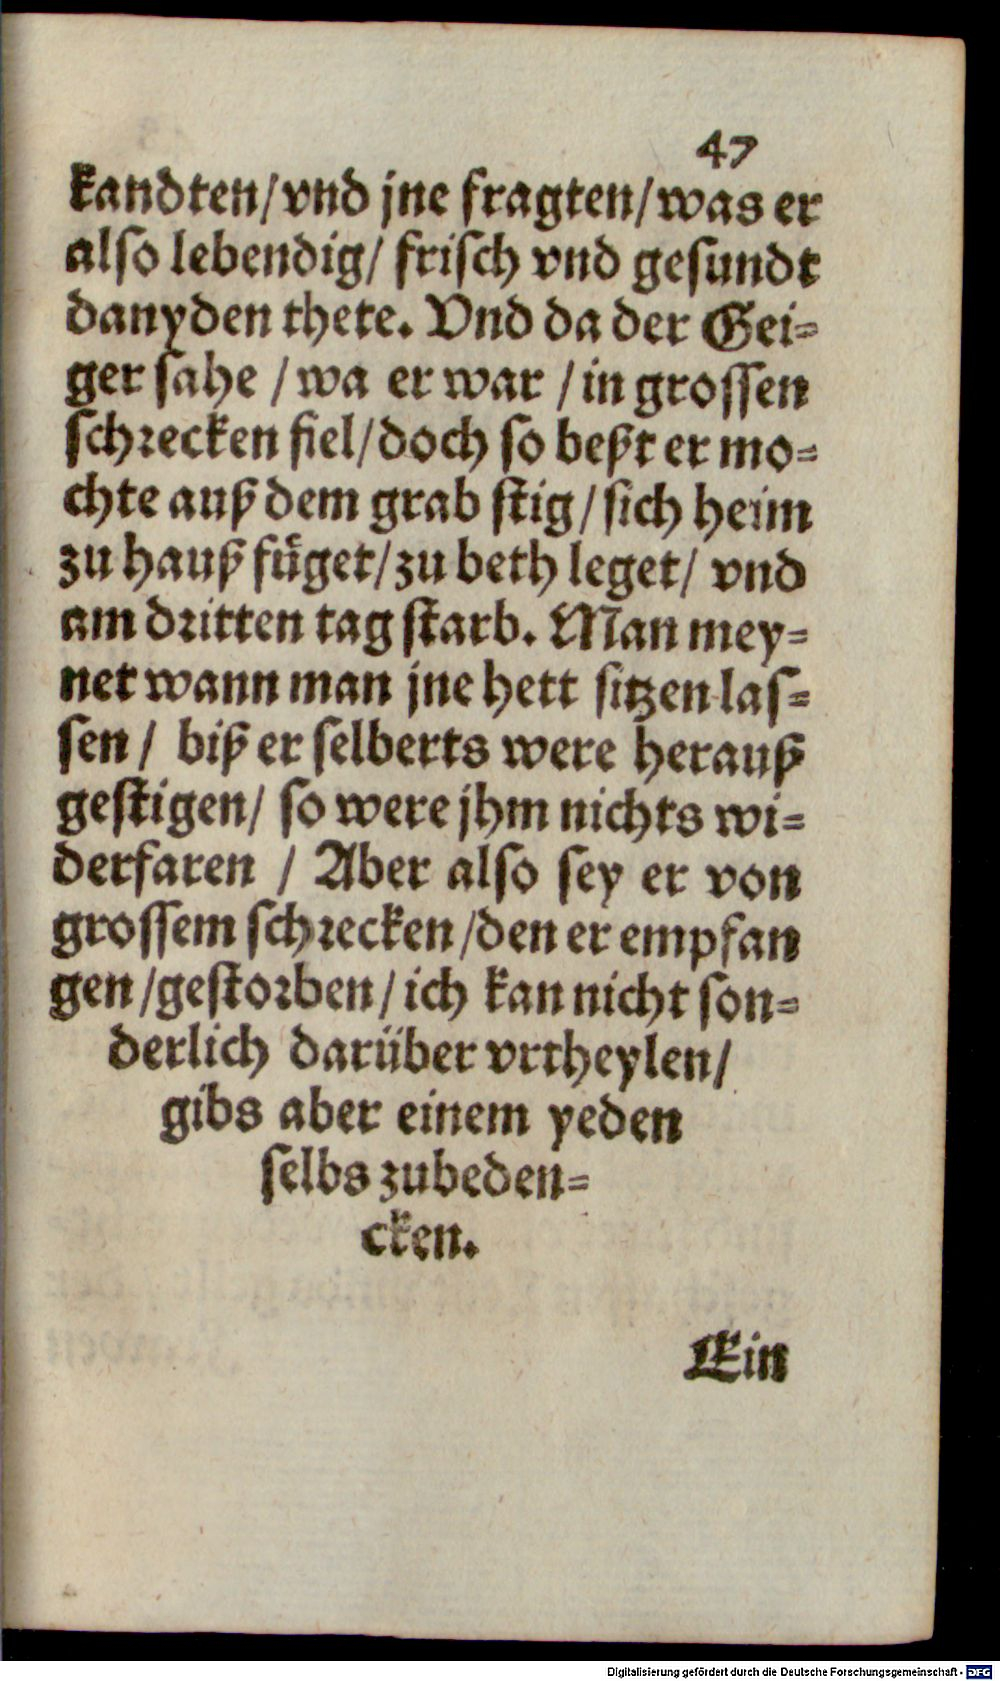 47
kandten/vnd jne fragten/was er
also lebendig/ frisch vnd gesundt
danyden thete. Vnd da der Gei-
ger sahe /wa er war /in grossen
schrecken fiel/doch so beßt er mo-
chte auß dem grab stig/sich heim
zu hauß füget/zu beth leget/ vnd
am dritten tag starb. Man mey-
net wann man jne hett sitzen las-
sen / biß er selberts were herauß
gestigen/ so were jhm nichts wi-
derfaren / Aber also sey er von
grossem schrecken/den er empfan
gen/gestorben/ich kan nicht son-
derlich darüber vrtheylen/
gibs aber einem yeden
selbs zubeden-
cken.
Ein
Digitalisierung gefördert durch die Deutsche Forschungsgemeinschaft - DFG